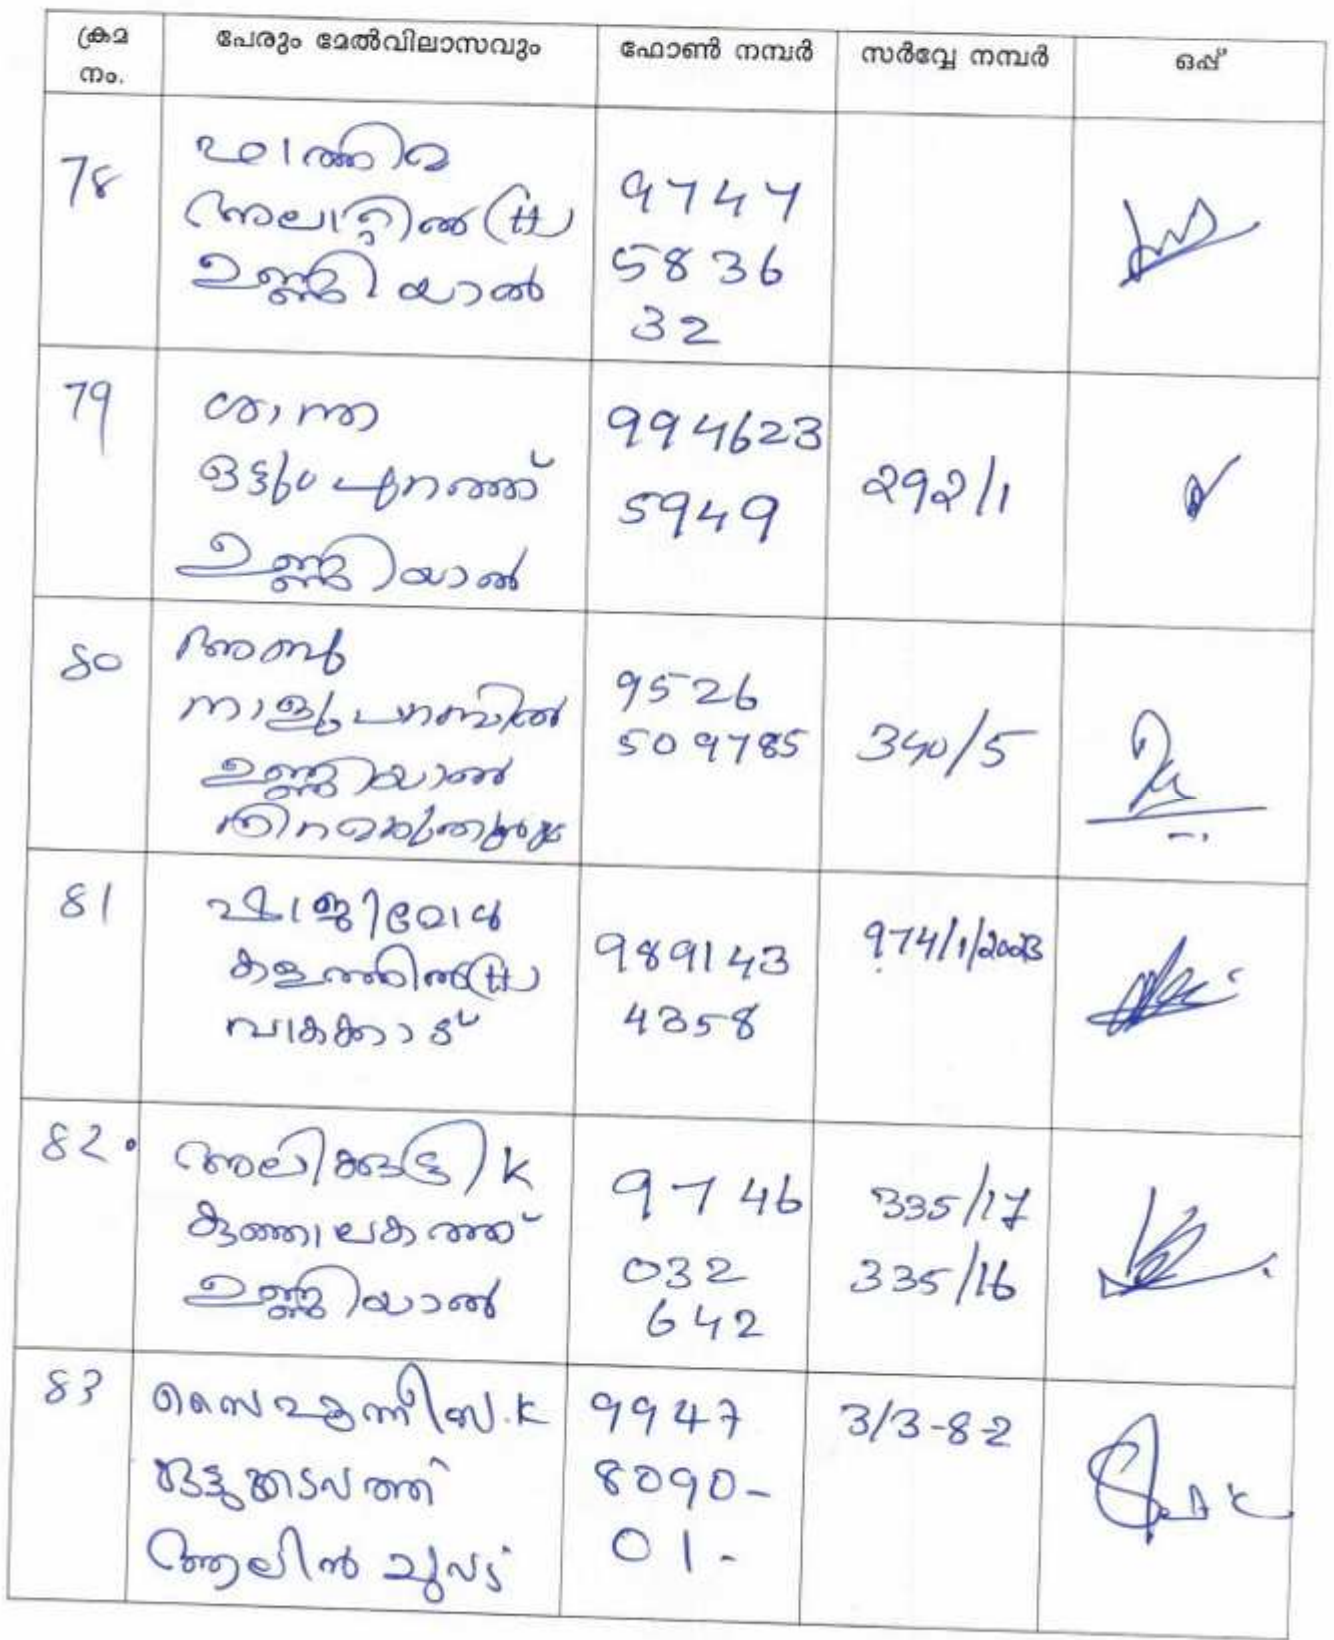 ക്രമ നം. പേരും മേൽവിലാസവും ഫോൺ നമ്പർ സർവ്വേ നമ്പർ ഒപ്പ്
78
ഫാത്തിമ
അലാറ്റിൽ (H)
ഉണ്ണിയാൽ
9747
5836
32
79
ശാന്ത
ഒട്ടുംപുറത്ത്
ഉണ്ണിയാൽ
994623
5949
292/1
80
അബു
നാളുപറമ്പിൽ
ഉണ്ണിയാൽ
9526
509785
340/5
81
ഷാജിമോൻ
കളത്തിൽ (H)
വാക്കാട്
989143
4358
974/1/2023
82.
അലിക്കുട്ടി K
കുഞ്ഞാലകത്ത്
ഉണ്ണിയാൽ
9746
032
642
335/17
335/16
83
K
ആലിൻ ചുവട്
9947
8090-
01-
3/3-82